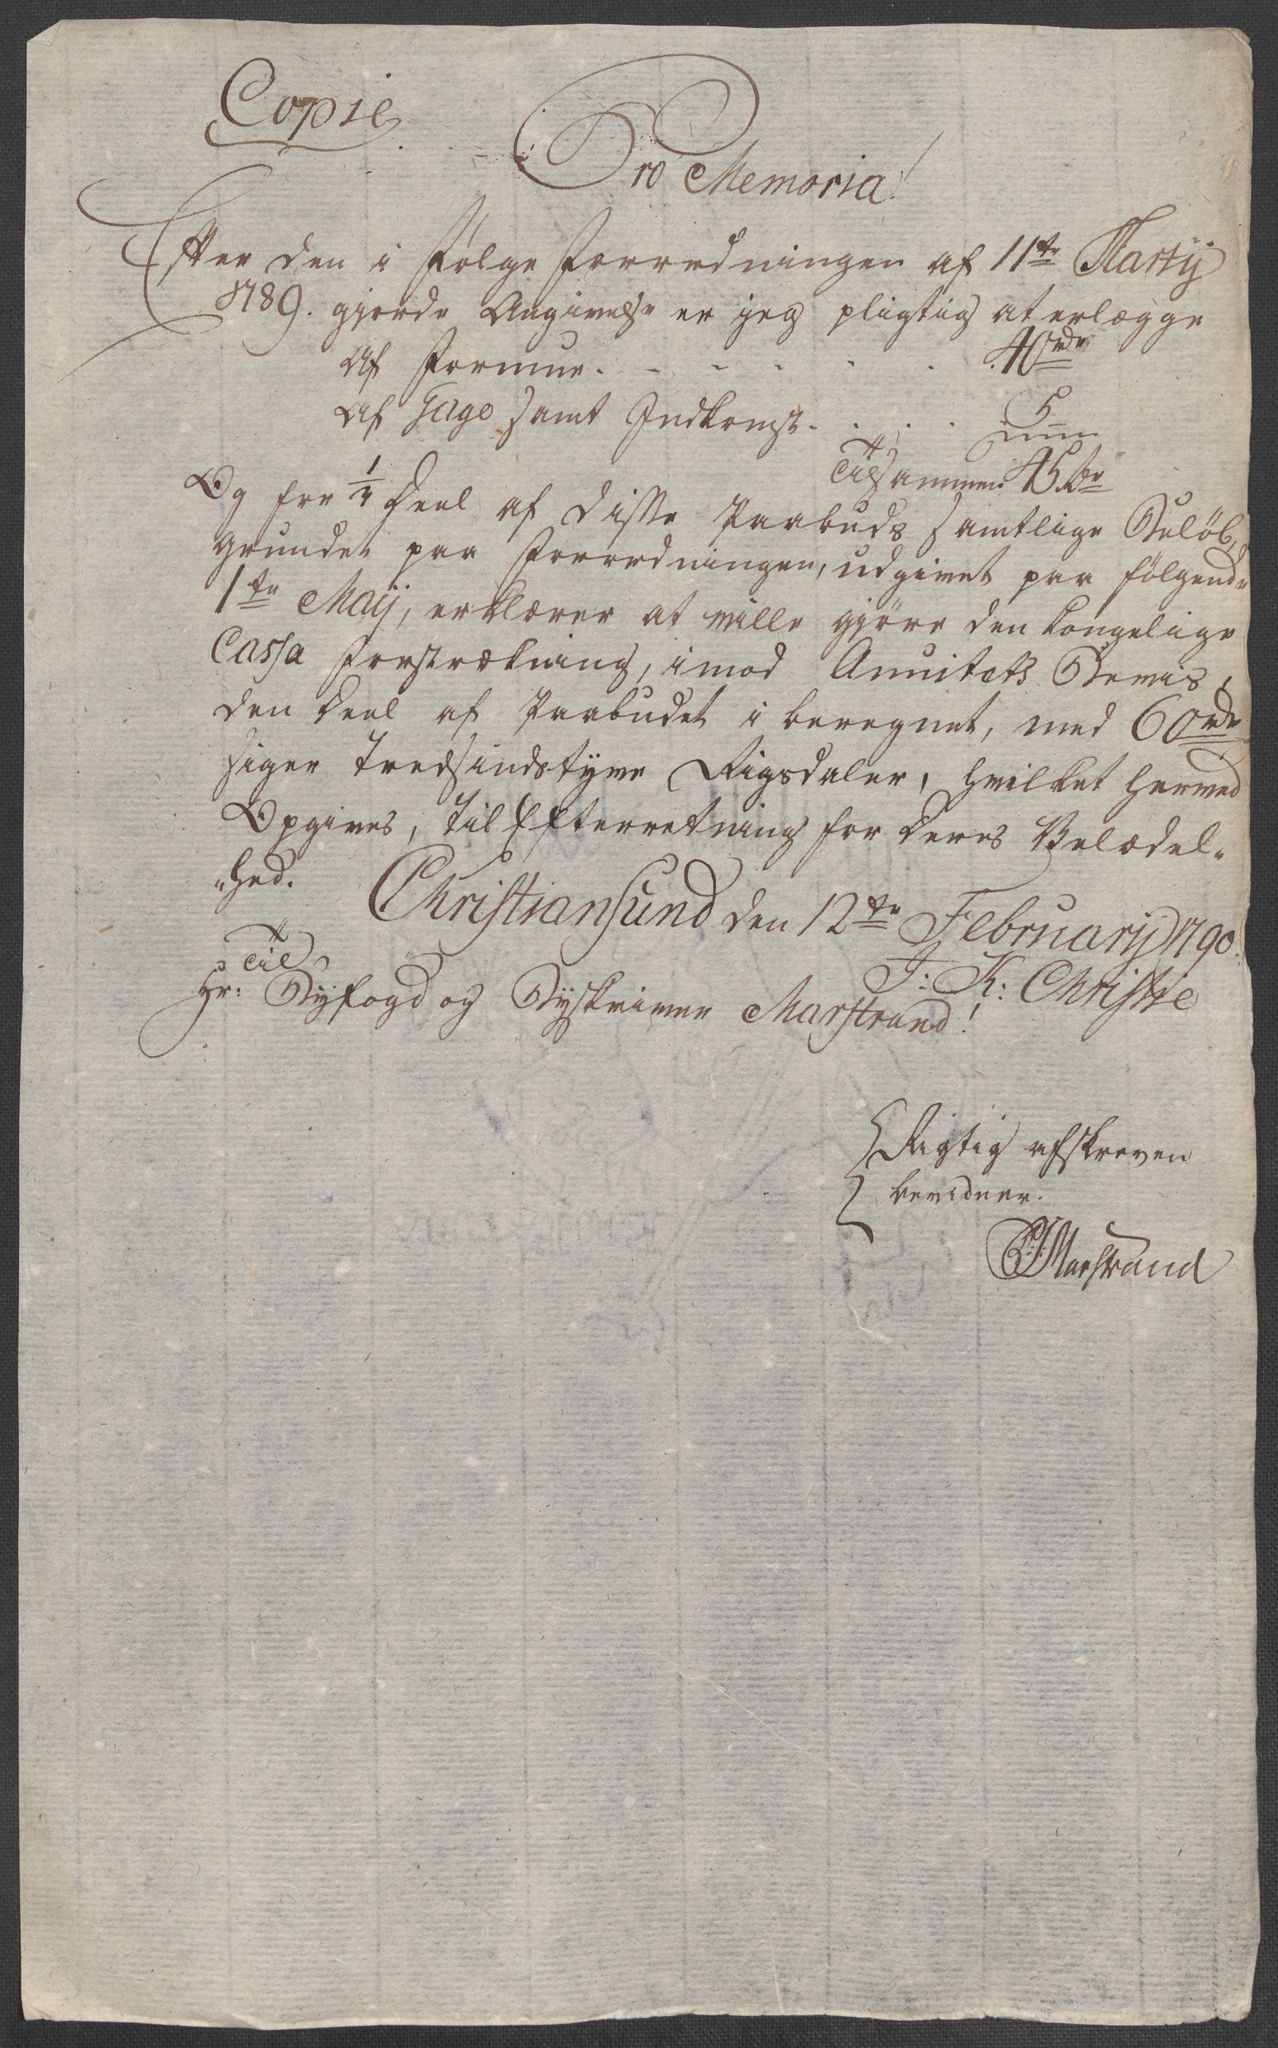 Copie
Pro Memoria!
Efter den i Følge Forordningen af 11te Martij
1789. gjorde Angivelse er jeg pligtig at erlægge
Af Formue. - - - - . 40rdr
Af Gage samt Indkomst. . . . 5
Tilsammen 45 dr
Og for 1/4 Deel af disse Paabuds samtlige Beløb,
grundet paa Forordningen, udgivet paa følgende
1te Maij, erklærer at ville gjöre den kongelige
Cassa Forstrækning, imod Annuitets Bevis,
den Deel af Paabudet i beregnet, med 60rdr
siger Tredsindstyve Rigsdaler, hvilket herved
Opgives, til Efterretning for Deres Velædel-
-hed.
Christiansund den 12te Februarij 1790.
J: K: Christie
Til
Hr: Byfogd og Byskriver Marstrand!
Rigtig afskreven
bevidner.
Marstrand